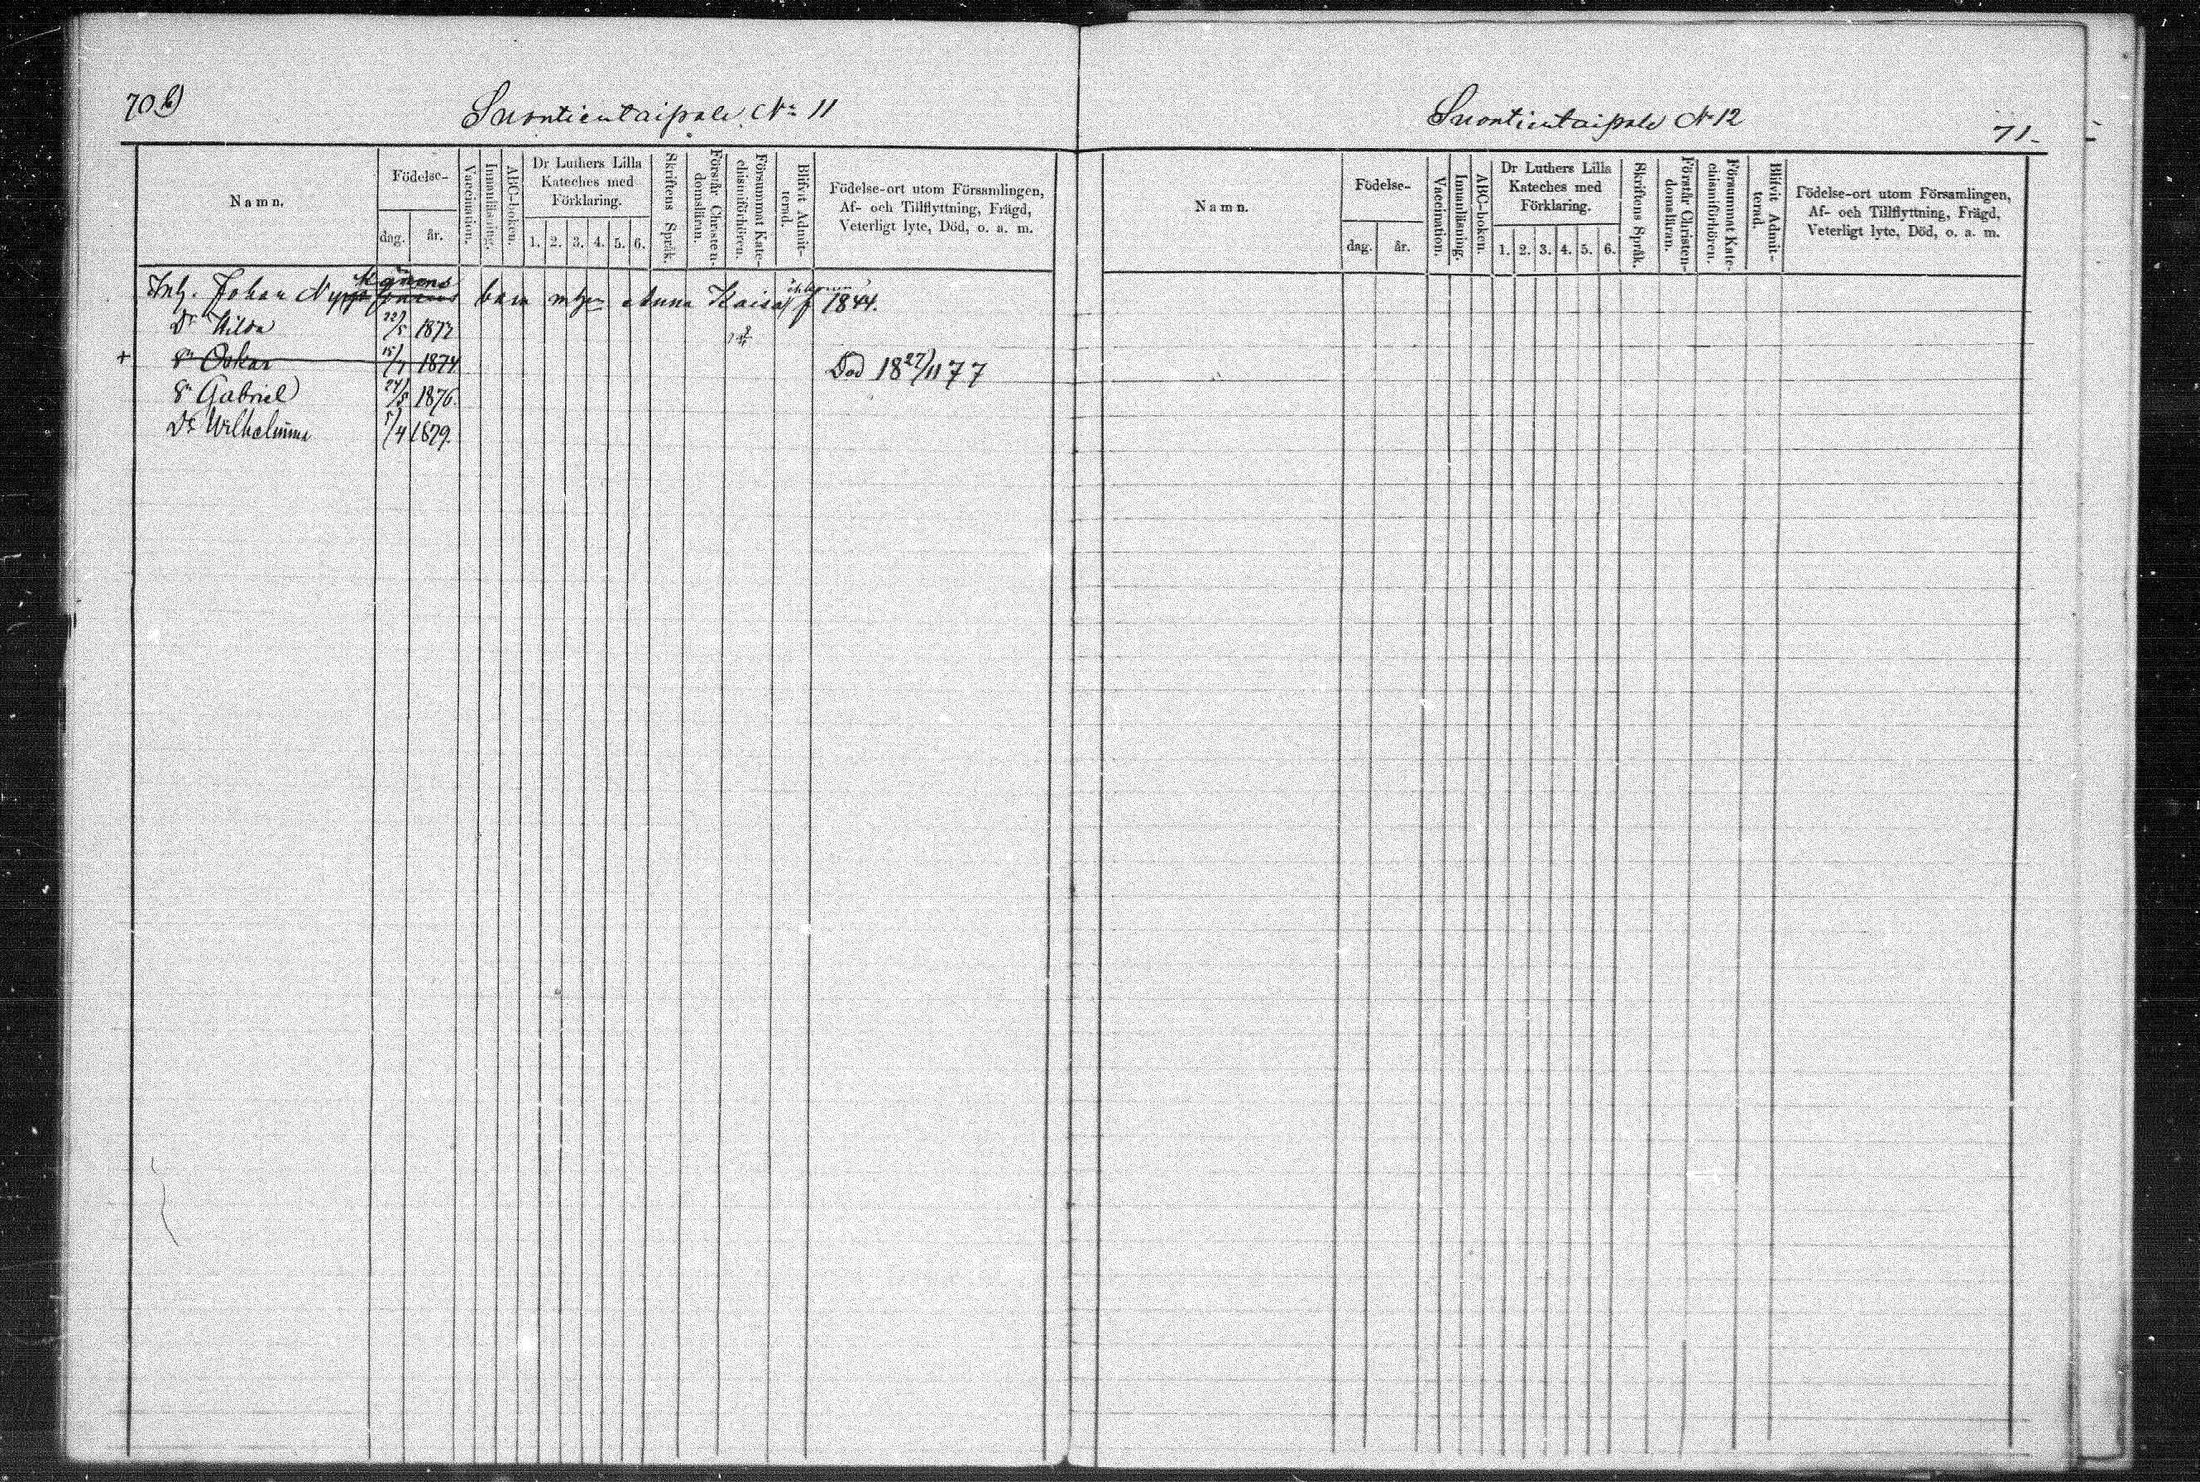 70 b)
Suontientaipale No 11
Namn.
Födelse-
dag.
år.
Vaccination.
Innanläsning.
ABC-boken.
Dr Luthers Lilla
Kateches med
Förklaring.
1. 2. 3. 4. 5. 6.
Skriftens Språk.
Förstår Christen-
domsläran.
Försummat Kate-
chismiförhören.
Blifvit Admit-
terad.
Födelse-ort utom Församlingen,
Af- och Tillflyttning, Frägd,
Veterligt lyte, Död, o. a. m.
Inh. Johan barn Anna Kaisa f 1844.
Dr Hilda 22/5 1872
+ Sn Oskar 15/1 1874 Död 18 27/11 77
Sn Gabriel 24/5 1876.
Dr Wilhelmina 5/4 1879.
Suontientaipale No 12
71.
Namn.
Födelse-
dag.
år.
Vaccination.
Innanläsning.
ABC-boken.
Dr Luthers Lilla
Kateches med
Förklaring.
1. 2. 3. 4. 5. 6.
Skriftens Språk.
Förstår Christen-
domsläran.
Försummat Kate-
chismiförhören.
Blifvit Admit-
terad.
Födelse-ort utom Församlingen,
Af- och Tillflyttning, Frägd,
Veterligt lyte, Död, o. a. m.